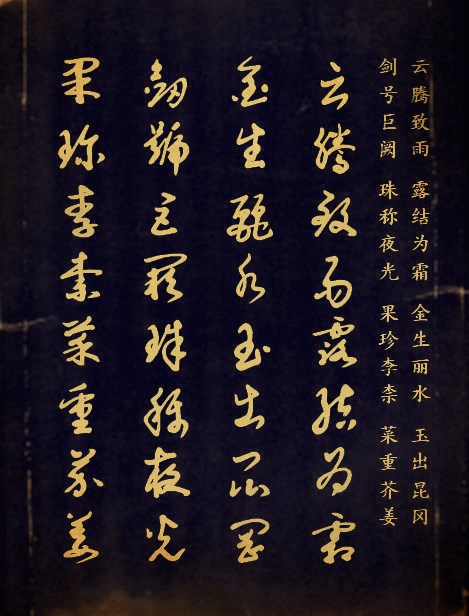 云腾致雨 露结为霜 金生丽水 玉出昆冈
剑号巨阙 珠称夜光 果珍李柰 菜重芥姜
云騰致雨露結為霜
金生麗水玉出崑岡
劍號巨闕珠稱夜光
果珍李柰菜重芥姜